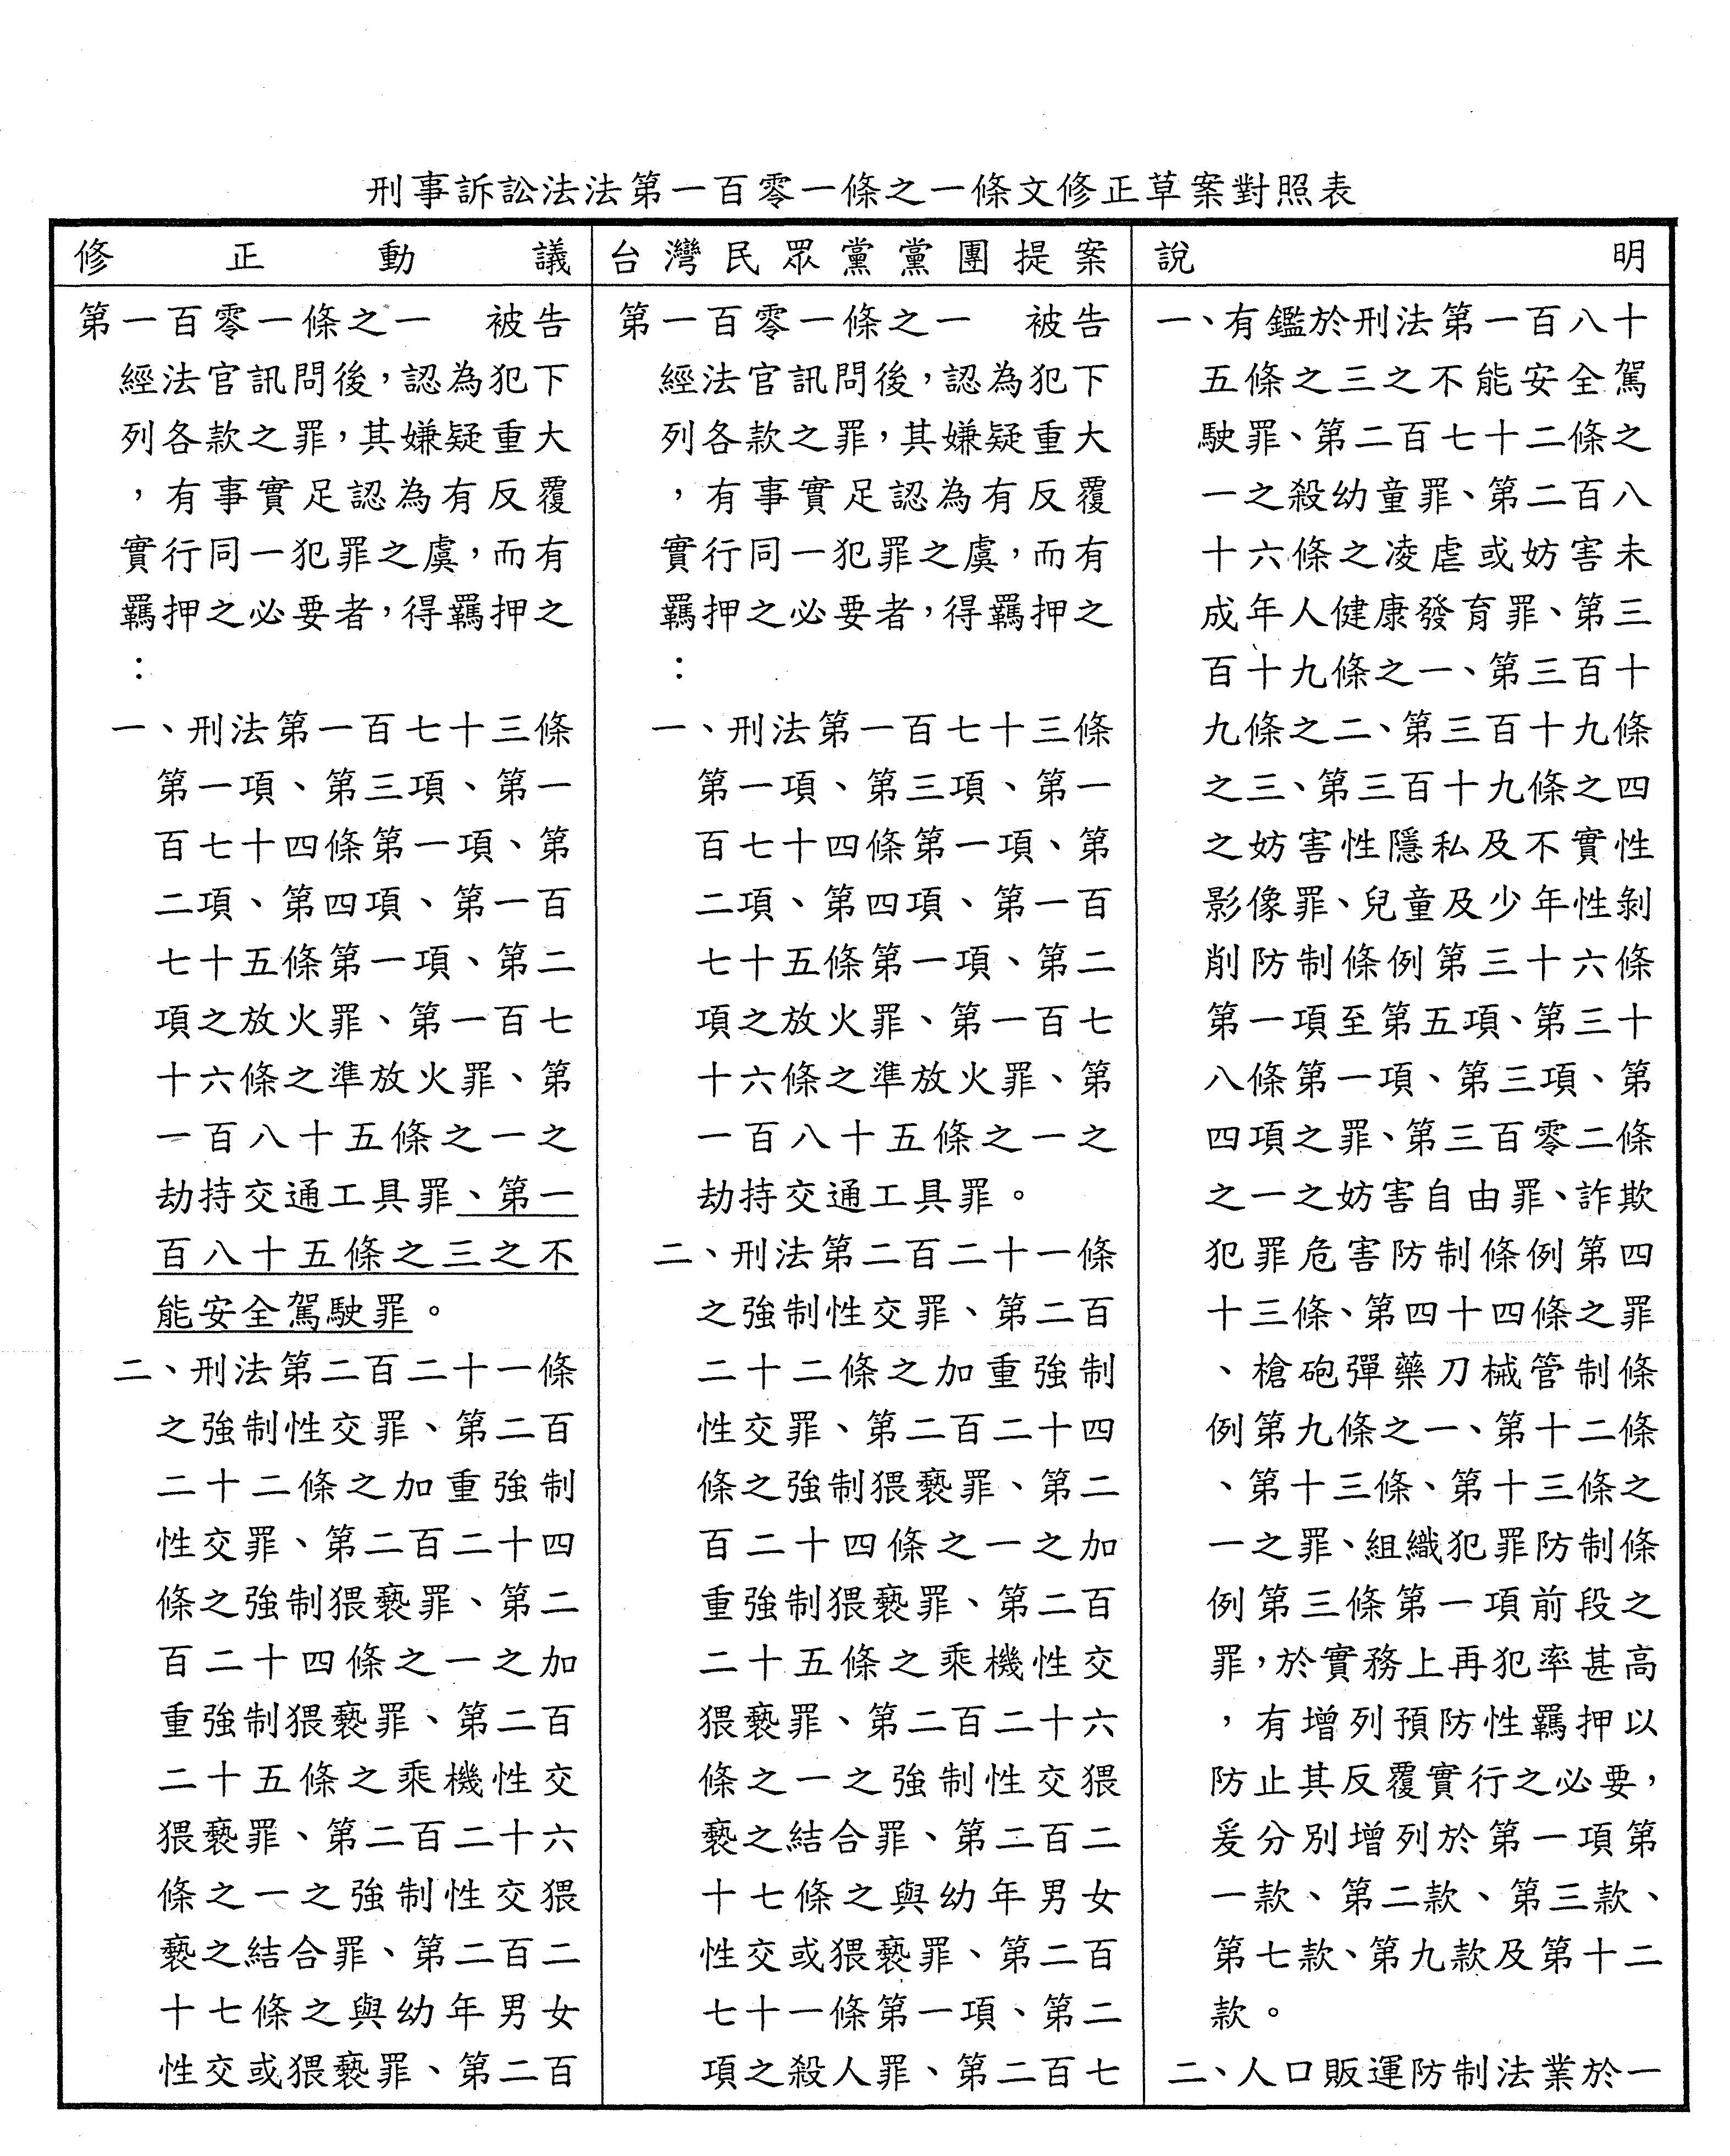 刑事訴訟法法第一百零一條之一條文修正草案對照表
修正動議
第一百零一條之一　被告
經法官訊問後，認為犯下
列各款之罪，其嫌疑重大
，有事實足認為有反覆
實行同一犯罪之虞，而有
羈押之必要者，得羈押之
：
一、刑法第一百七十三條
第一項、第三項、第一
百七十四條第一項、第
二項、第四項、第一百
七十五條第一項、第二
項之放火罪、第一百七
十六條之準放火罪、第
一百八十五條之一之
劫持交通工具罪、第一
百八十五條之三之不
能安全駕駛罪。
二、刑法第二百二十一條
之強制性交罪、第二百
二十二條之加重強制
性交罪、第二百二十四
條之強制猥褻罪、第二
百二十四條之一之加
重強制猥褻罪、第二百
二十五條之乘機性交
猥褻罪、第二百二十六
條之一之強制性交猥
褻之結合罪、第二百二
十七條之與幼年男女
性交或猥褻罪、第二百
台灣民眾黨黨團提案
第一百零一條之一　被告
經法官訊問後，認為犯下
列各款之罪，其嫌疑重大
，有事實足認為有反覆
實行同一犯罪之虞，而有
羈押之必要者，得羈押之
：
一、刑法第一百七十三條
第一項、第三項、第一
百七十四條第一項、第
二項、第四項、第一百
七十五條第一項、第二
項之放火罪、第一百七
十六條之準放火罪、第
一百八十五條之一之
劫持交通工具罪。
二、刑法第二百二十一條
之強制性交罪、第二百
二十二條之加重強制
性交罪、第二百二十四
條之強制猥褻罪、第二
百二十四條之一之加
重強制猥褻罪、第二百
二十五條之乘機性交
猥褻罪、第二百二十六
條之一之強制性交猥
褻之結合罪、第二百二
十七條之與幼年男女
性交或猥褻罪、第二百
七十一條第一項、第二
項之殺人罪、第二百七
說明
一、有鑑於刑法第一百八十
五條之三之不能安全駕
駛罪、第二百七十二條之
一之殺幼童罪、第二百八
十六條之凌虐或妨害未
成年人健康發育罪、第三
百十九條之一、第三百十
九條之二、第三百十九條
之三、第三百十九條之四
之妨害性隱私及不實性
影像罪、兒童及少年性剝
削防制條例第三十六條
第一項至第五項、第三十
八條第一項、第三項、第
四項之罪、第三百零二條
之一之妨害自由罪、詐欺
犯罪危害防制條例第四
十三條、第四十四條之罪
、槍砲彈藥刀械管制條
例第九條之一、第十二條
、第十三條、第十三條之
一之罪、組織犯罪防制條
例第三條第一項前段之
罪，於實務上再犯率甚高
，有增列預防性羈押以
防止其反覆實行之必要，
爰分別增列於第一項第
一款、第二款、第三款、
第七款、第九款及第十二
款。
二、人口販運防制法業於一